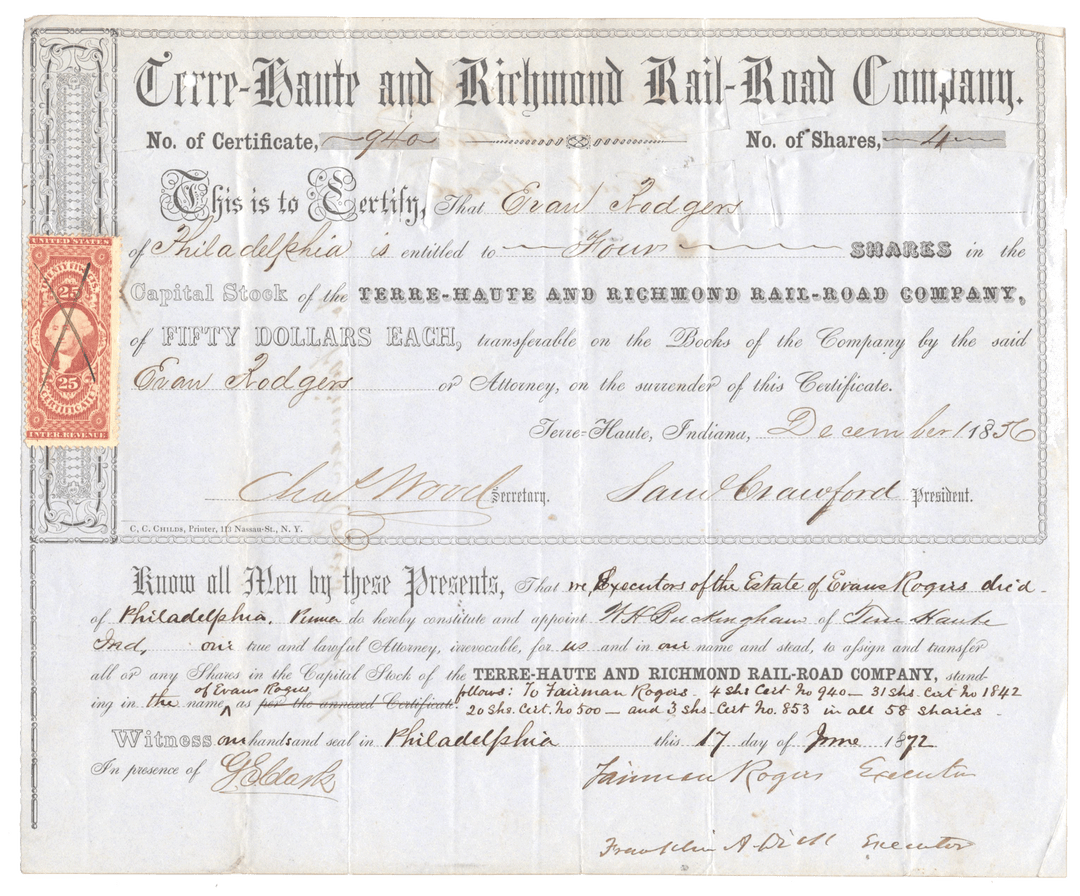 Terre-Haute and Richmond Rail-Road Company.
No. of Certificate, 940 No. of Shares, 4
This is to Certify, That Evan Rodgers
of Philadelphia is entitled to Four SHARES in the
Capital Stock of the TERRE-HAUTE AND RICHMOND RAIL-ROAD COMPANY,
of FIFTY DOLLARS EACH, transferable on the Books of the Company by the said
Evan Rodgers or Attorney, on the surrender of this Certificate.
Terre-Haute, Indiana, December 1 1856
Chas Wood Secretary. Saml Crawford President.
C. C. CHILDS, Printer, 113 Nassau-St., N. Y.
UNITED STATES
25 25
25
CERTIFICATE
INTER. REVENUE
Know all Men by these Presents, That we Executors of the Estate of Evans Rogers dec'd
of Philadelphia, Penna do hereby constitute and appoint W H Buckingham of Terre Haute
Ind, our true and lawful Attorney, irrevocable, for us and in our name and stead, to assign and transfer
all or any Shares in the Capital Stock of the TERRE-HAUTE AND RICHMOND RAIL-ROAD COMPANY, stand-
ing in the name of Evans Rogers as per the annexed Certificate follows: To Fairman Rogers 4 Shs Cert. No 940 — 31 Shs. Cert No 1842
20 Shs. Cert. No 500 — and 3 Shs. Cert No. 853 in all 58 shares.
Witness our hands and seal in Philadelphia this 17 day of June 1872
In presence of G E Clark Fairman Rogers Executor
Franklin A Dick Executor